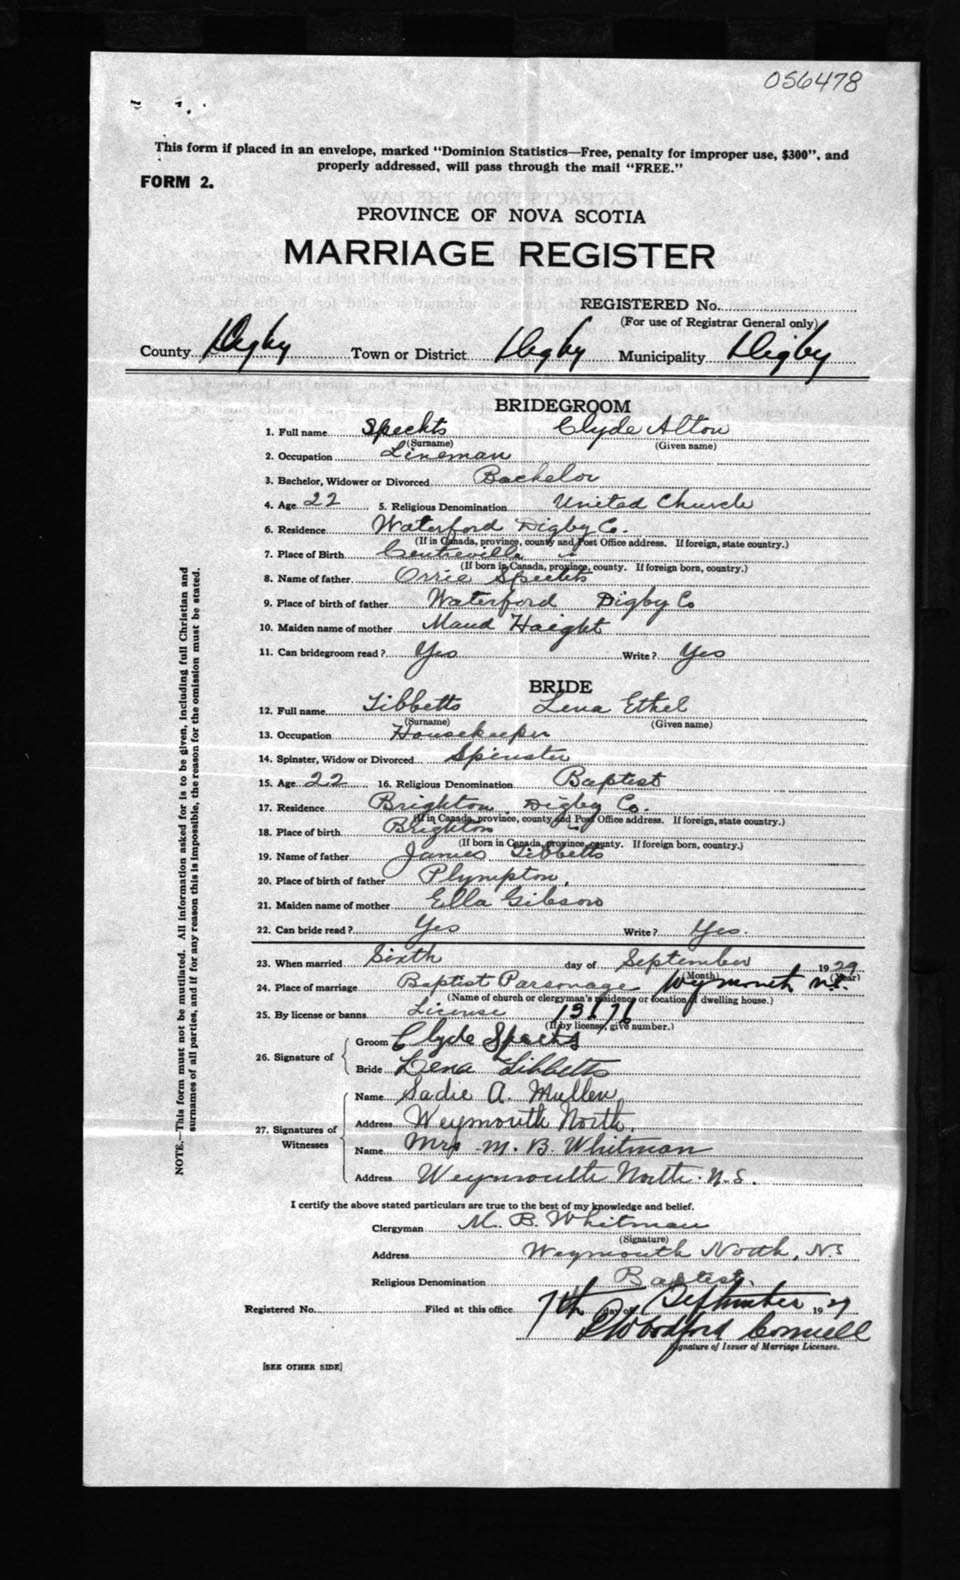 056478
This form if placed in an envelope, marked "Dominion Statistics—Free, penalty for improper use, $300", and
properly addressed, will pass through the mail "FREE."
FORM 2.
PROVINCE OF NOVA SCOTIA
MARRIAGE REGISTER
REGISTERED No.
(For use of Registrar General only)
County Digby Town or District Digby Municipality Digby
BRIDEGROOM
1. Full name Spechts Clyde Alton
(Surname) (Given name)
2. Occupation Lineman
3. Bachelor, Widower or Divorced Bachelor
4. Age 22 5. Religious Denomination United Church
6. Residence Waterford Digby Co.
(If in Canada, province, county and Post Office address. If foreign, state country.)
7. Place of Birth Centreville
(If born in Canada, province, county. If foreign born, country.)
8. Name of father Orrie Spechts
9. Place of birth of father Waterford Digby Co
10. Maiden name of mother Maud Haight
11. Can bridegroom read? Yes Write? Yes
BRIDE
12. Full name Tibbetts Lena Ethel
(Surname) (Given name)
13. Occupation Housekeeper
14. Spinster, Widow or Divorced Spinster
15. Age 22 16. Religious Denomination Baptist
17. Residence Brighton Digby Co.
(If in Canada, province, county and Post Office address. If foreign, state country.)
18. Place of birth Brighton
(If born in Canada, province, county. If foreign born, country.)
19. Name of father James Tibbetts
20. Place of birth of father Plympton.
21. Maiden name of mother Ella Gibson
22. Can bride read? Yes Write? Yes.
23. When married Sixth day of September 1929
(Month) (Year)
24. Place of marriage Baptist Parsonage Wymouth N.S.
(Name of church or clergyman's residence or location of dwelling house.)
25. By license or banns. License
(If by license, give number.)
26. Signature of Groom Clyde Spechts
Bride Lena Tibbetts
27. Signatures of Witnesses
Name Sadie A. Mullen
Address Weymouth North.
Name Mrs M. B. Whitman
Address Weymouth North. N.S.
I certify the above stated particulars are true to the best of my knowledge and belief.
Clergyman M. B. Whitman
(Signature)
Address Weymouth North, N.S
Religious Denomination Baptist.
Registered No. Filed at this office 7th day of September 19
Woodford Connell
Signature of Issuer of Marriage Licenses.
[SEE OTHER SIDE]
NOTE.—This form must not be mutilated. All information asked for is to be given, including full Christian and
surnames of all parties, and if for any reason this is impossible, the reason for the omission must be stated.